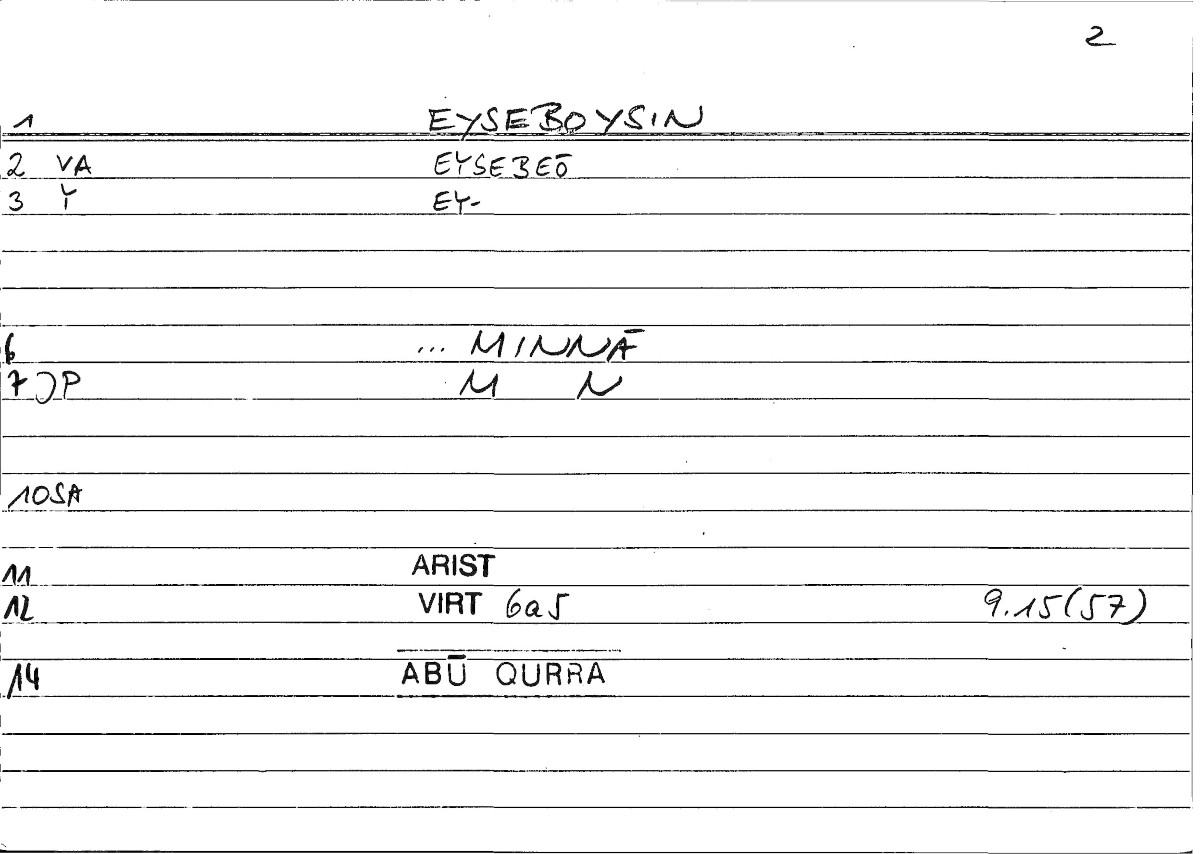 2
1 EYSEBOYSIN
2 VA EYSEBEŌ
3 Y EY-
6 ... MINNĀ
7 JP M N
10 SA
11 ARIST
12 VIRT 6a5 9.15(57)
14 ABŪ QURRA